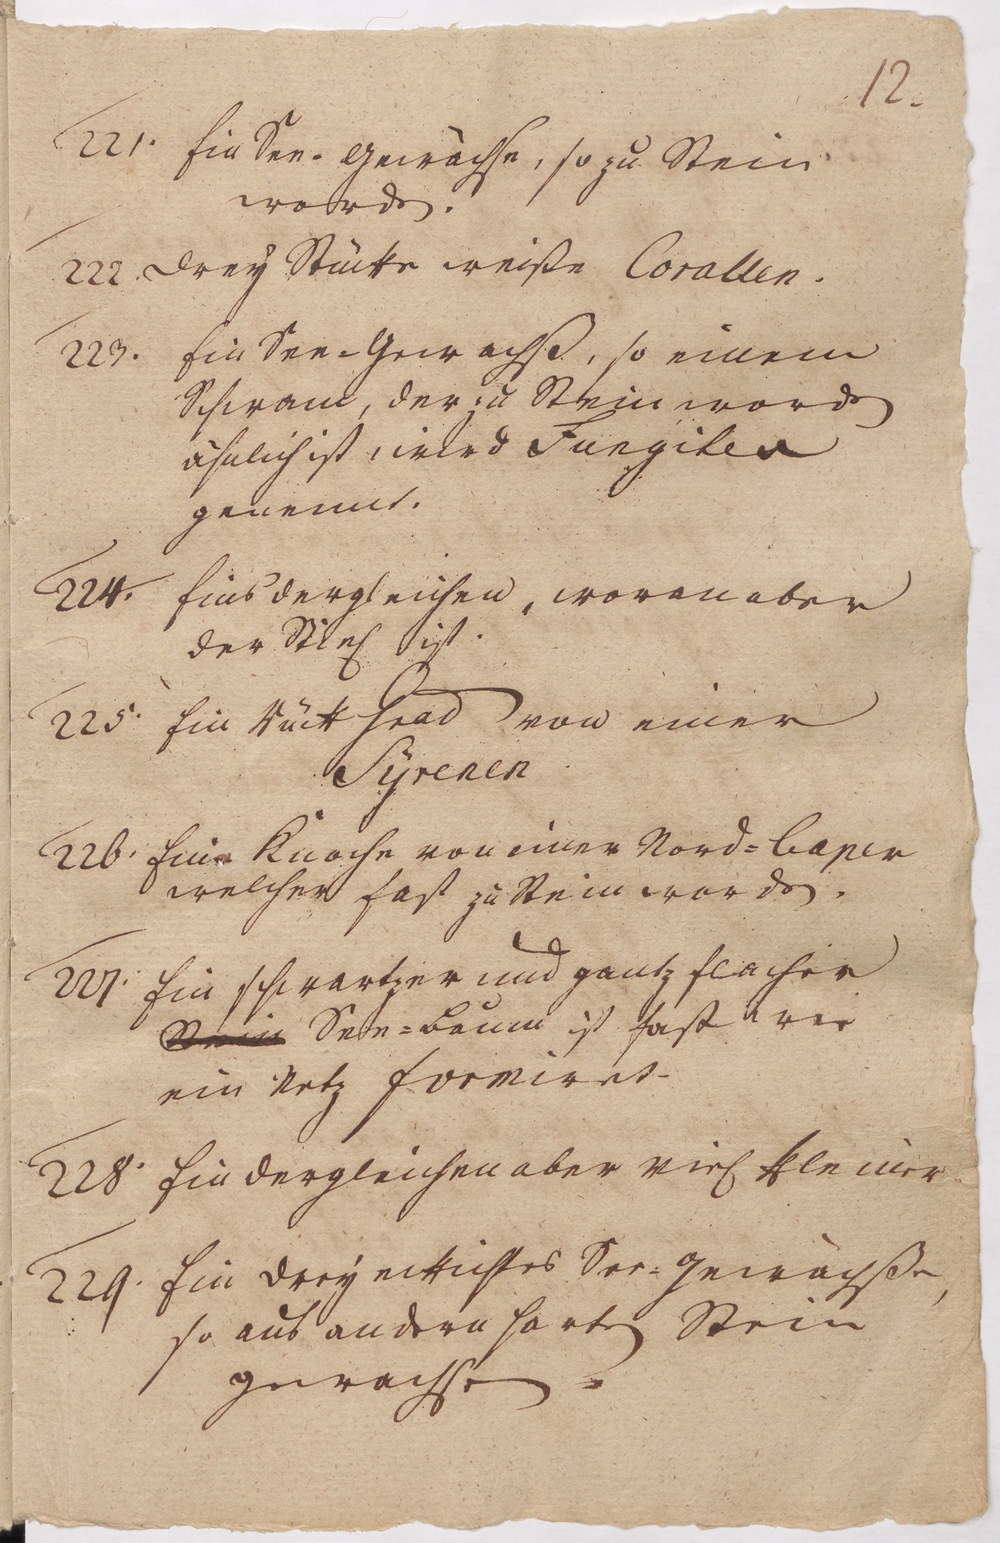 12.
221. Ein See-Gewächse, so zu Stein
worden.
222. Drey Stücke weiße Corallen.
223. Ein See-Gewächß, so einem
Schwam, der zu Stein worden
ähnlich ist, wird Fungites
genennt.
224. Eins dergleichen, woran aber
der Stiel ist.
225. Ein Rück Grad von einer
Syrenen
226. Ein Knoche von einer Nord-Caper
welcher fast zu Stein worden.
227. Ein schwartzer und gantz flacher
Stein See-Baum ist fast wie
ein Netz formiret.
228. Ein dergleichen aber viel kleiner
229. Ein dreyeckichtes See-Gewächße,
so aus andern harten Stein
gewachsen.